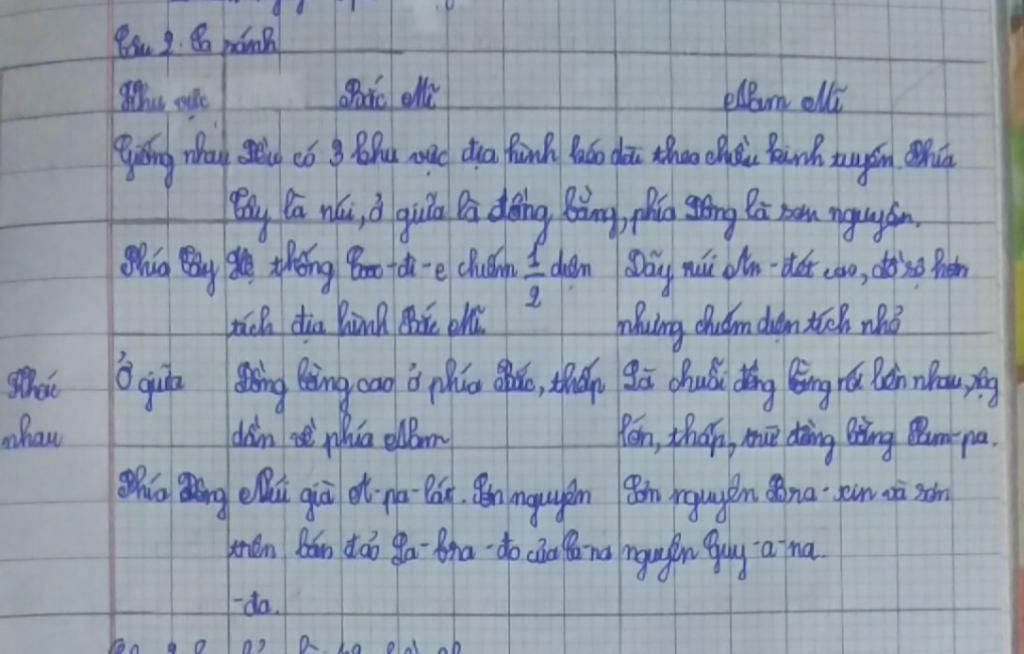 Câu 2. So sánh
Khu vực Bắc Mĩ Nam Mĩ
Giống nhau Đều có 3 khu vực địa hình kéo dài theo chiều kinh tuyến. Phía
Tây là núi, ở giữa là đồng bằng, phía Đông là sơn nguyên.
Phía Tây Hệ thống Coo-đi-e chiếm 1/2 diện Dãy núi An-đét cao, đồ sộ hơn
tích địa hình Bắc Mĩ. nhưng chiếm diện tích nhỏ
Khác Ở giữa Đồng bằng cao ở phía Bắc, thấp Là chuỗi đồng bằng nối liền nhau,
nhau dần về phía Nam lớn, thấp, trừ đồng bằng Pam-pa.
Phía Đông Núi già A-pa-lát. Sơn nguyên Sơn nguyên Bra-xin và sơn
trên bán đảo La-bra-đo của Ca-na nguyên Guy-a-na.
-đa.